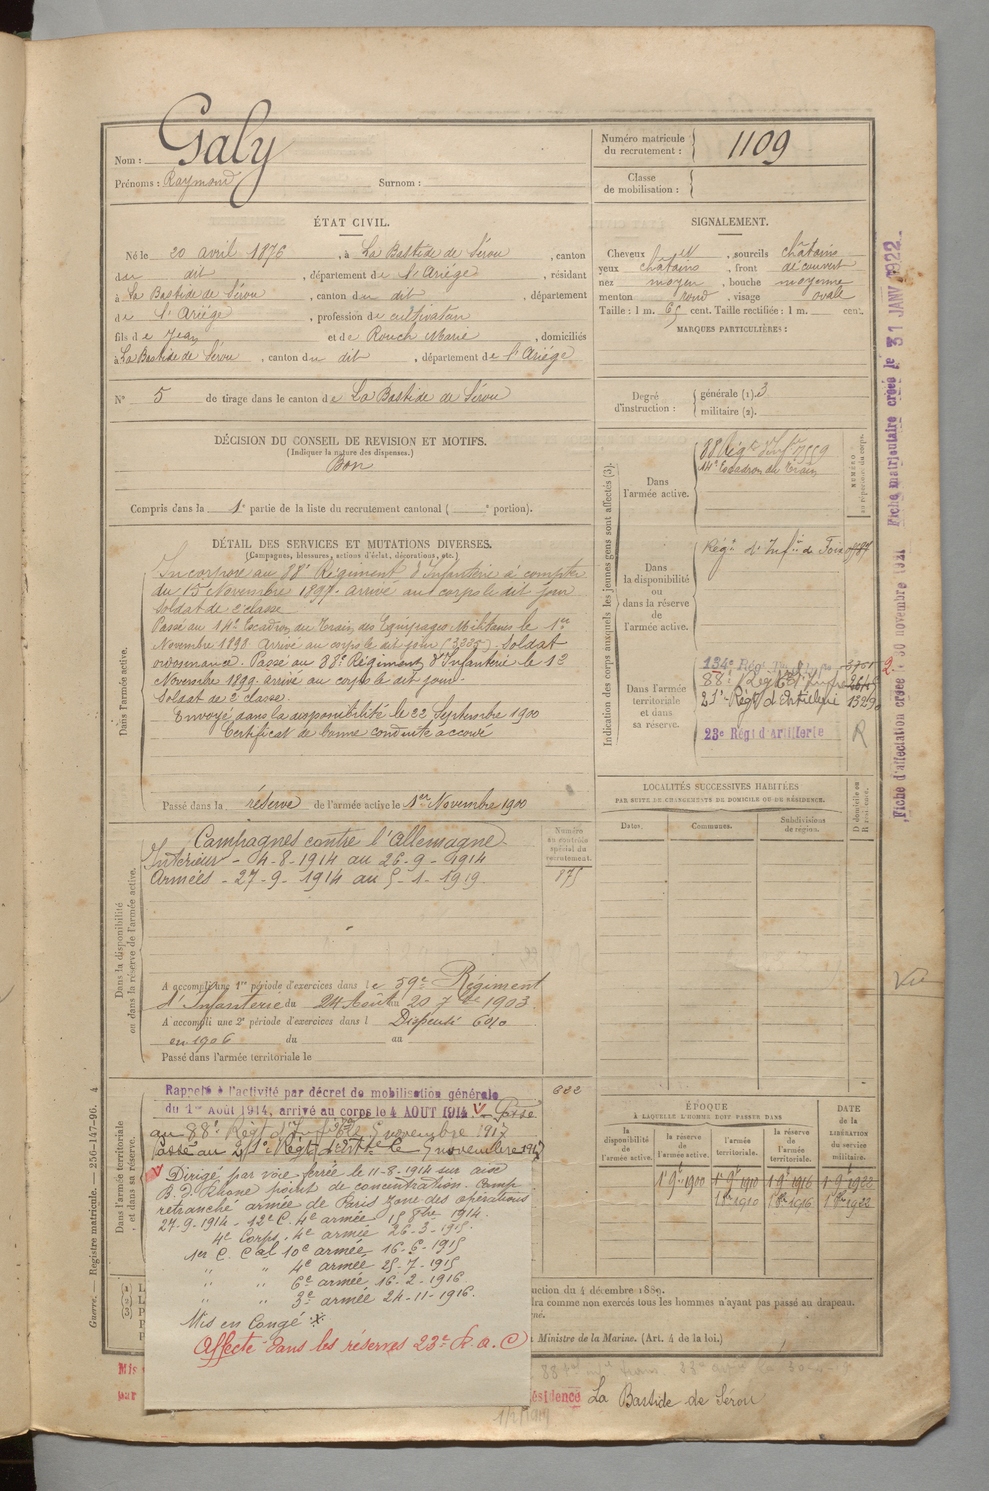 Nom : Galy
Prénoms : Raymond Surnom :
Numéro matricule du recrutement : 1109
Classe de mobilisation :
ÉTAT CIVIL.
Né le 20 avril 1876, à La Bastide de Sérou, canton
du dit, département de l'Ariège, résidant
à La Bastide de Sérou, canton du dit, département
de l'Ariège, profession de cultivateur
fils de Jean et de Rouch Marie, domiciliés
à La Bastide de Sérou, canton du dit, département de l'Ariège
N° 5 de tirage dans le canton de La Bastide de Sérou
SIGNALEMENT.
Cheveux et, sourcils châtains
yeux châtains, front découvert
nez moyen, bouche moyenne
menton rond, visage ovale
Taille : 1 m. 65 cent. Taille rectifiée : 1 m. cent.
MARQUES PARTICULIÈRES :
Degré d'instruction : générale (1). 3
militaire (2).
DÉCISION DU CONSEIL DE REVISION ET MOTIFS.
(Indiquer la nature des dispenses.)
Bon
Compris dans la 1e partie de la liste du recrutement cantonal ( e portion).
DÉTAIL DES SERVICES ET MUTATIONS DIVERSES.
(Campagnes, blessures, actions d'éclat, décorations, etc.)
Dans l'armée active.
Incorporé au 88e Régiment d'Infanterie à compter
du 15 Novembre 1897. arrivé au corps le dit jour
Soldat de 2e classe
Passé au 14e Escadron du Train des Equipages Militaires le 1er
Novembre 1898 Arrivé au corps le dit jour (3335) Soldat
ordonnance. Passé au 88e Régiment d'Infanterie le 1er
Novembre 1899. arrivé au corps le dit jour.
Soldat de 2e classe.
Envoyé dans la disponibilité le 22 Septembre 1900
Certificat de bonne conduite accordé
Passé dans la réserve de l'armée active le 1er Novembre 1900
Indication des corps auxquels les jeunes gens sont affectés (3).
Dans l'armée active.
88e Régt d'Inf. 7559
14e Escadron du Train
NUMÉRO au répertoire du corps.
Dans la disponibilité ou dans la réserve de l'armée active.
Régt d'Infie de Foix
Dans l'armée territoriale et dans sa réserve.
134e Régt
88e Régt d'Infie
21e Régt d'Artillerie
23e Régt d'Artillerie R
LOCALITÉS SUCCESSIVES HABITÉES
PAR SUITE DE CHANGEMENTS DE DOMICILE OU DE RÉSIDENCE.
Dates. Communes. Subdivisions de région. D domicile ou R résidence.
Dans la disponibilité ou dans la réserve de l'armée active.
Campagnes contre l'Allemagne
Intérieur - 4-8-1914 au 26-9-1914
Armées - 27-9-1914 au 5-1-1919
Numéro au contrôle spécial du recrutement.
875
A accompli une 1re période d'exercices dans le 59e Régiment
d'Infanterie du 24 Août au 20 7bre 1903
A accompli une 2e période d'exercices dans l Dispensé
en 1906 du au
Passé dans l'armée territoriale le
Dans l'armée territoriale et dans sa réserve.
Rappelé à l'activité par décret de mobilisation générale
du 1er Août 1914, arrivé au corps le 4 AOUT 1914 V - Passé
au 88e Régt d'Infie le 5 novembre 1917
Passé au 21e Régt d'artie le 5 novembre 1917
V Dirigé par voie ferrée le 11-8-1914 sur
B. d. Rhône point de concentration. Camp
retranché armée de Paris zone des opérations
27-9-1914 - 12e C. 4e armée 15 9bre 1914.
4e Corps. 4e armée 26-3-1915.
1er C. Cal 10e armée 16-6-1915
" " 4e armée 25-7-1915
" " 6e armée 16-2-1916
" " 3e armée 24-11-1916.
Mis en Congé
Affecté dans les réserves 23e R. A. C
ÉPOQUE
À LAQUELLE L'HOMME DOIT PASSER DANS
la disponibilité de l'armée active. la réserve de l'armée active. l'armée territoriale. la réserve de l'armée territoriale.
DATE DE LA LIBÉRATION du service militaire.
1er 9bre 1900 1er 9bre 1910 1er 9bre 1916 1er 9bre 1922
1er 8bre 1910 1er 8bre 1916 1er 8bre 1922
uction du 4 décembre 1889.
dra comme non exercés tous les hommes n'ayant pas passé au drapeau.
Ministre de la Marine. (Art. 4 de la loi.)
Mis
par
ésidence La Bastide de Sérou
Guerre. — Registre matricule. — 256-147-96. 4
Fiche d'affectation créée le 30 novembre 1921 Fiche matriculaire créée le 31 JANV 1922
Vu